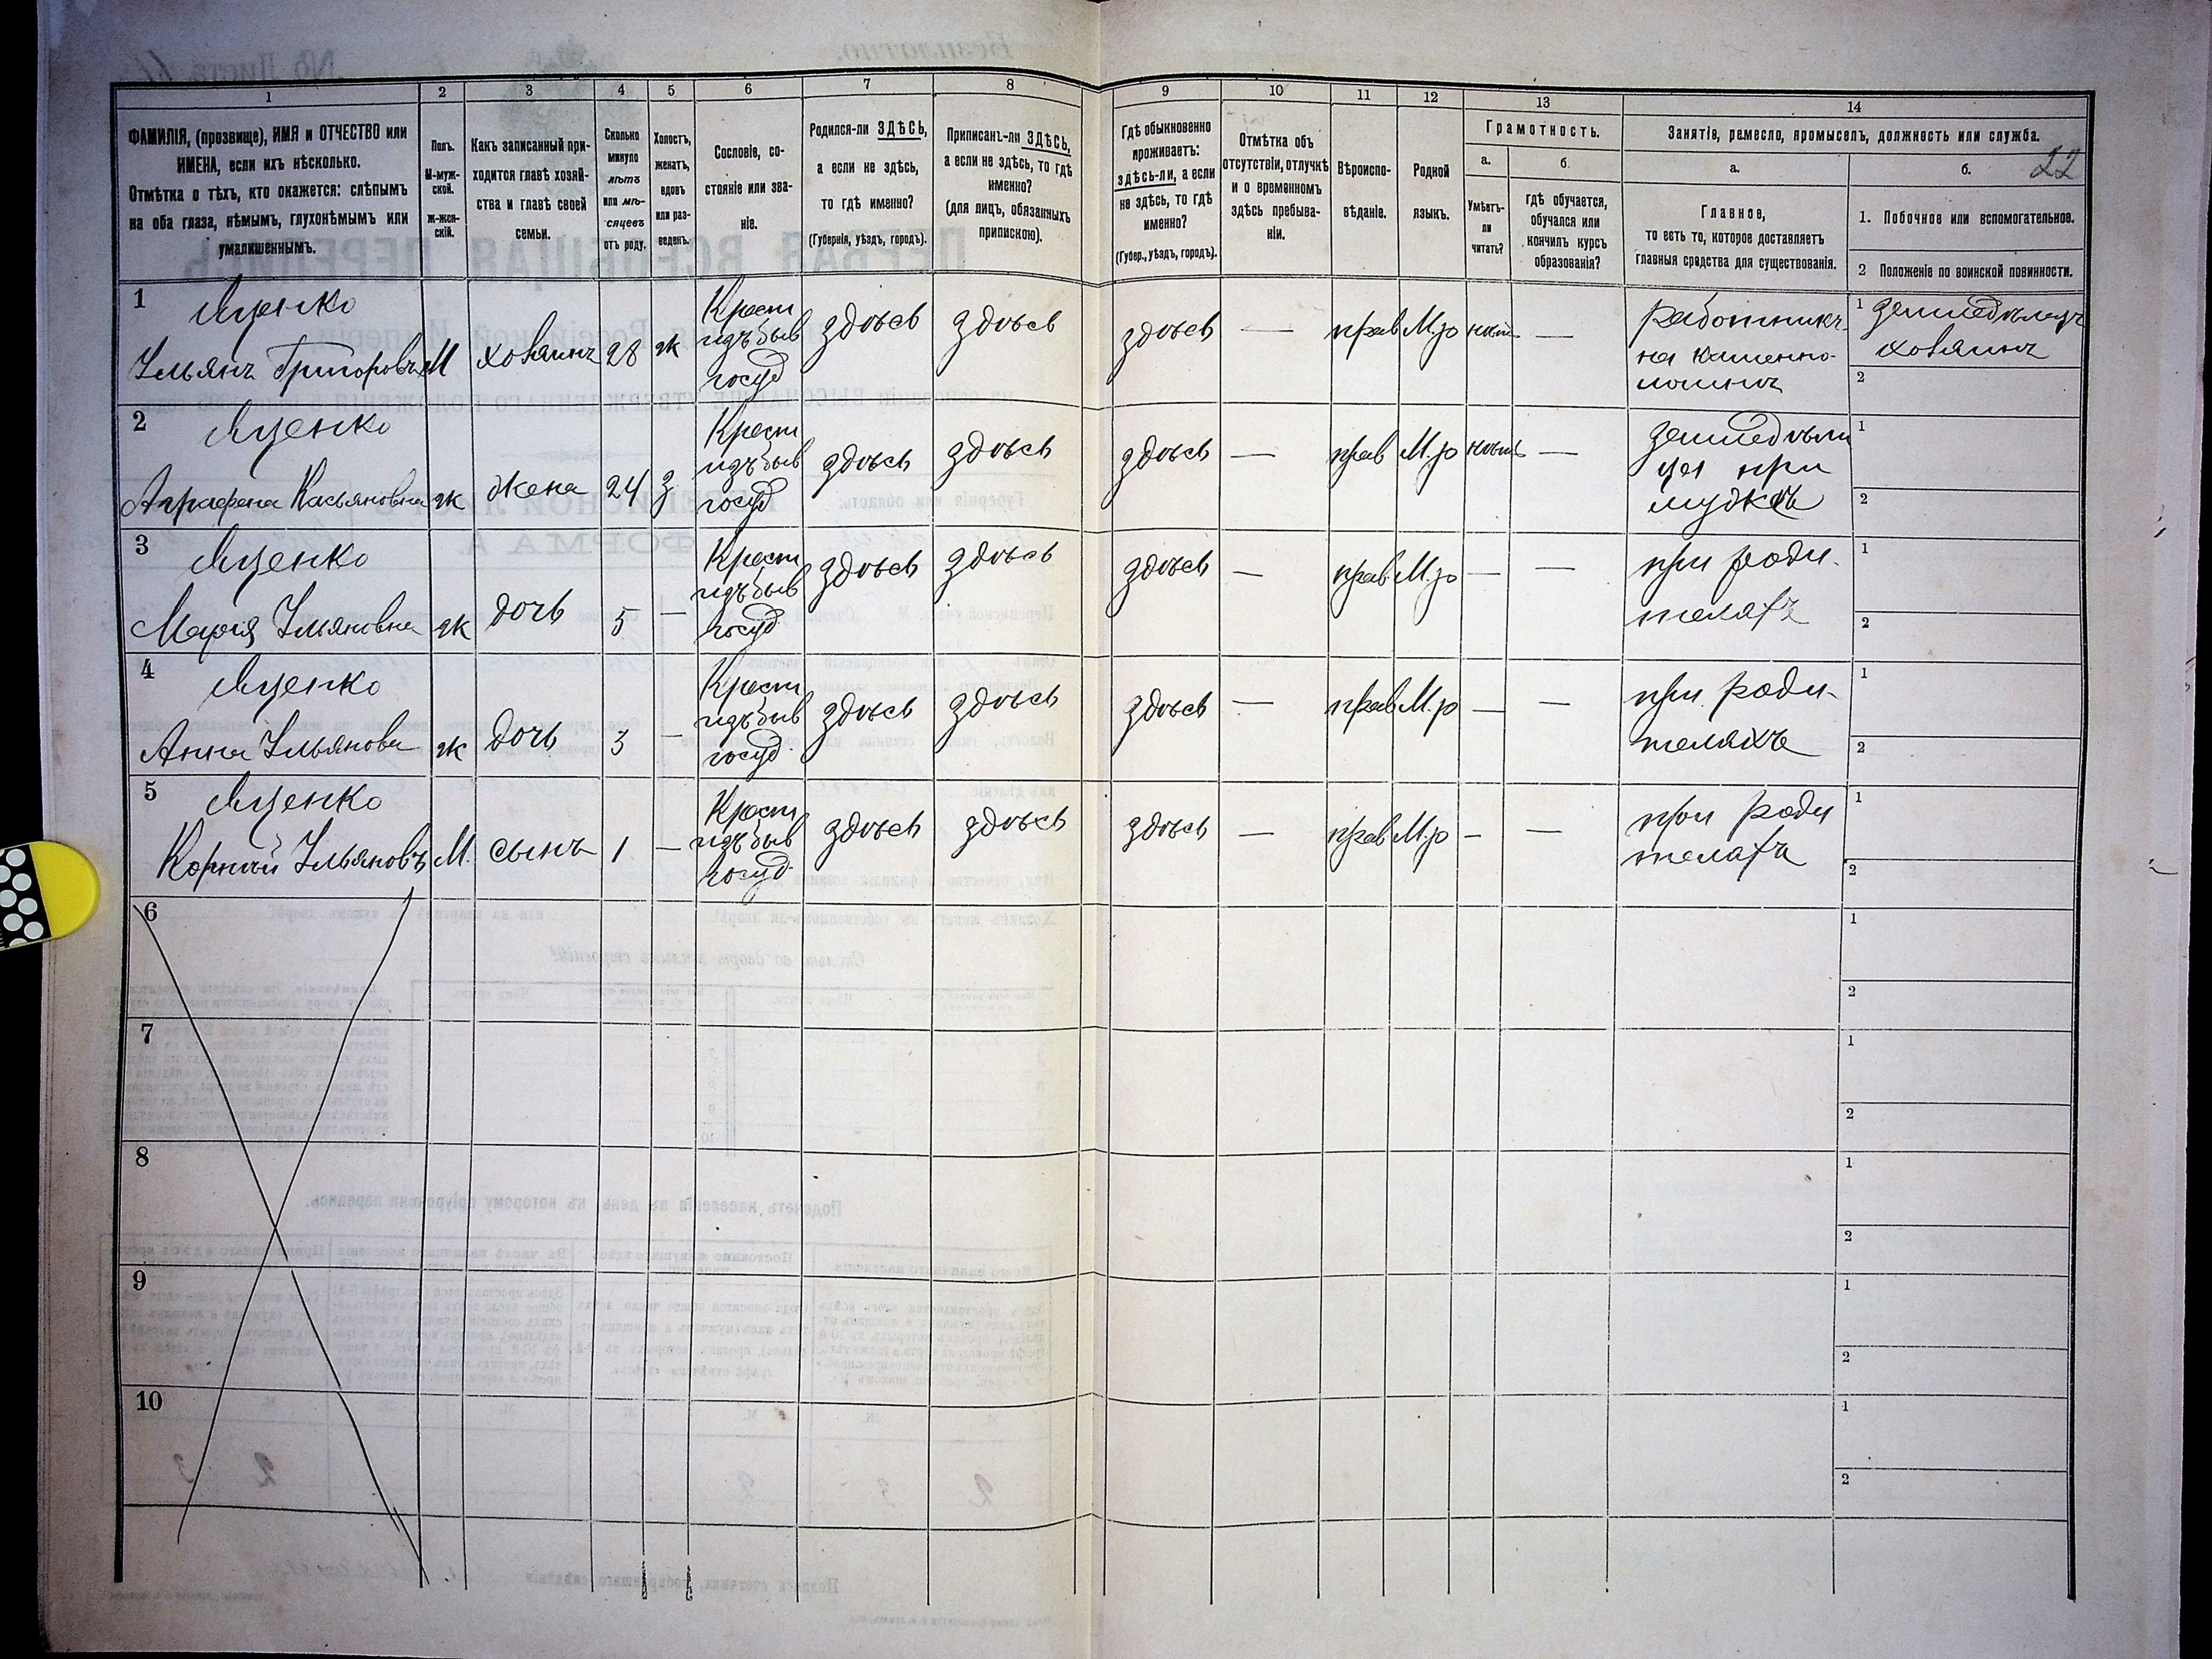 22
1 2 3 4 5 6 7 8 9 10 11 12 13 14
ФАМИЛІЯ, (прозвище), ИМЯ и ОТЧЕСТВО или
ИМЕНА, если ихъ нѣсколько.
Отмѣтка о тѣхъ, кто окажется: слѣпымъ
на оба глаза, нѣмымъ, глухонѣмымъ или
умалишеннымъ.
Полъ.
М-муж-
ской.
Ж-жен-
скій.
Какъ записанный при-
ходится главѣ хозяй-
ства и главѣ своей
семьи.
Сколько
минуло
лѣтъ
или мѣ-
сяцевъ
отъ роду.
Холостъ,
женатъ,
вдовъ
или раз-
веденъ.
Сословіе, со-
стояніе или зва-
ніе.
Родился-ли ЗДѢСЬ,
а если не здѣсь,
то гдѣ именно?
(Губернія, уѣздъ, городъ).
Приписанъ-ли ЗДѢСЬ,
а если не здѣсь, то гдѣ
именно?
(для лицъ, обязанныхъ
припискою).
Гдѣ обыкновенно
проживаетъ:
здѣсь-ли, а если
не здѣсь, то гдѣ
именно?
(Губер., уѣздъ, городъ).
Отмѣтка объ
отсутствіи, отлучкѣ
и о временномъ
здѣсь пребыва-
ніи.
Вѣроиспо-
вѣданіе.
Родной
языкъ.
Грамотность.
а.
Умѣетъ-
ли
читать?
б.
гдѣ обучается,
обучался или
кончилъ курсъ
образованія?
Занятіе, ремесло, промыселъ, должность или служба.
а.
Главное,
то есть то, которое доставляетъ
главныя средства для существованія.
б.
1. Побочное или вспомогательное.
2 Положеніе по воинской повинности.
1 Яценко
Ильянъ Григоровъ
М
хозяинъ
28
ж
Крест
изъ быв
госуд
здѣсь
здѣсь
здѣсь
—
прав
М.р
нѣтъ
—
работникъ
на каменно-
ломнѣ
1 земледѣлецъ
хозяинъ
2
2 Яценко
Аграфена Касьяновна
ж
жена
24
з
Крест
изъ быв
госуд
здѣсь
здѣсь
здѣсь
—
прав
М.р
нѣтъ
—
земледѣли
ца при
мужѣ
1
2
3 Яценко
Марія Ильяновна
ж
дочь
5
—
Крест
изъ быв
госуд
здѣсь
здѣсь
здѣсь
—
прав.
М.р
—
—
при роди-
теляхъ
1
2
4 Яценко
Анна Ильянова
ж
дочь
3
—
Крест
изъ быв
госуд.
здѣсь
здѣсь
здѣсь
—
прав
М.р
—
—
при роди-
теляхъ
1
2
5 Яценко
Корнѣй Ильяновъ
М.
сынъ
1
—
Крест
изъ быв
госуд.
здѣсь
здѣсь
здѣсь
—
прав.
М.р
—
—
при роди
теляхъ
1
2
6
1
2
7
1
2
8
1
2
9
1
2
10
1
2